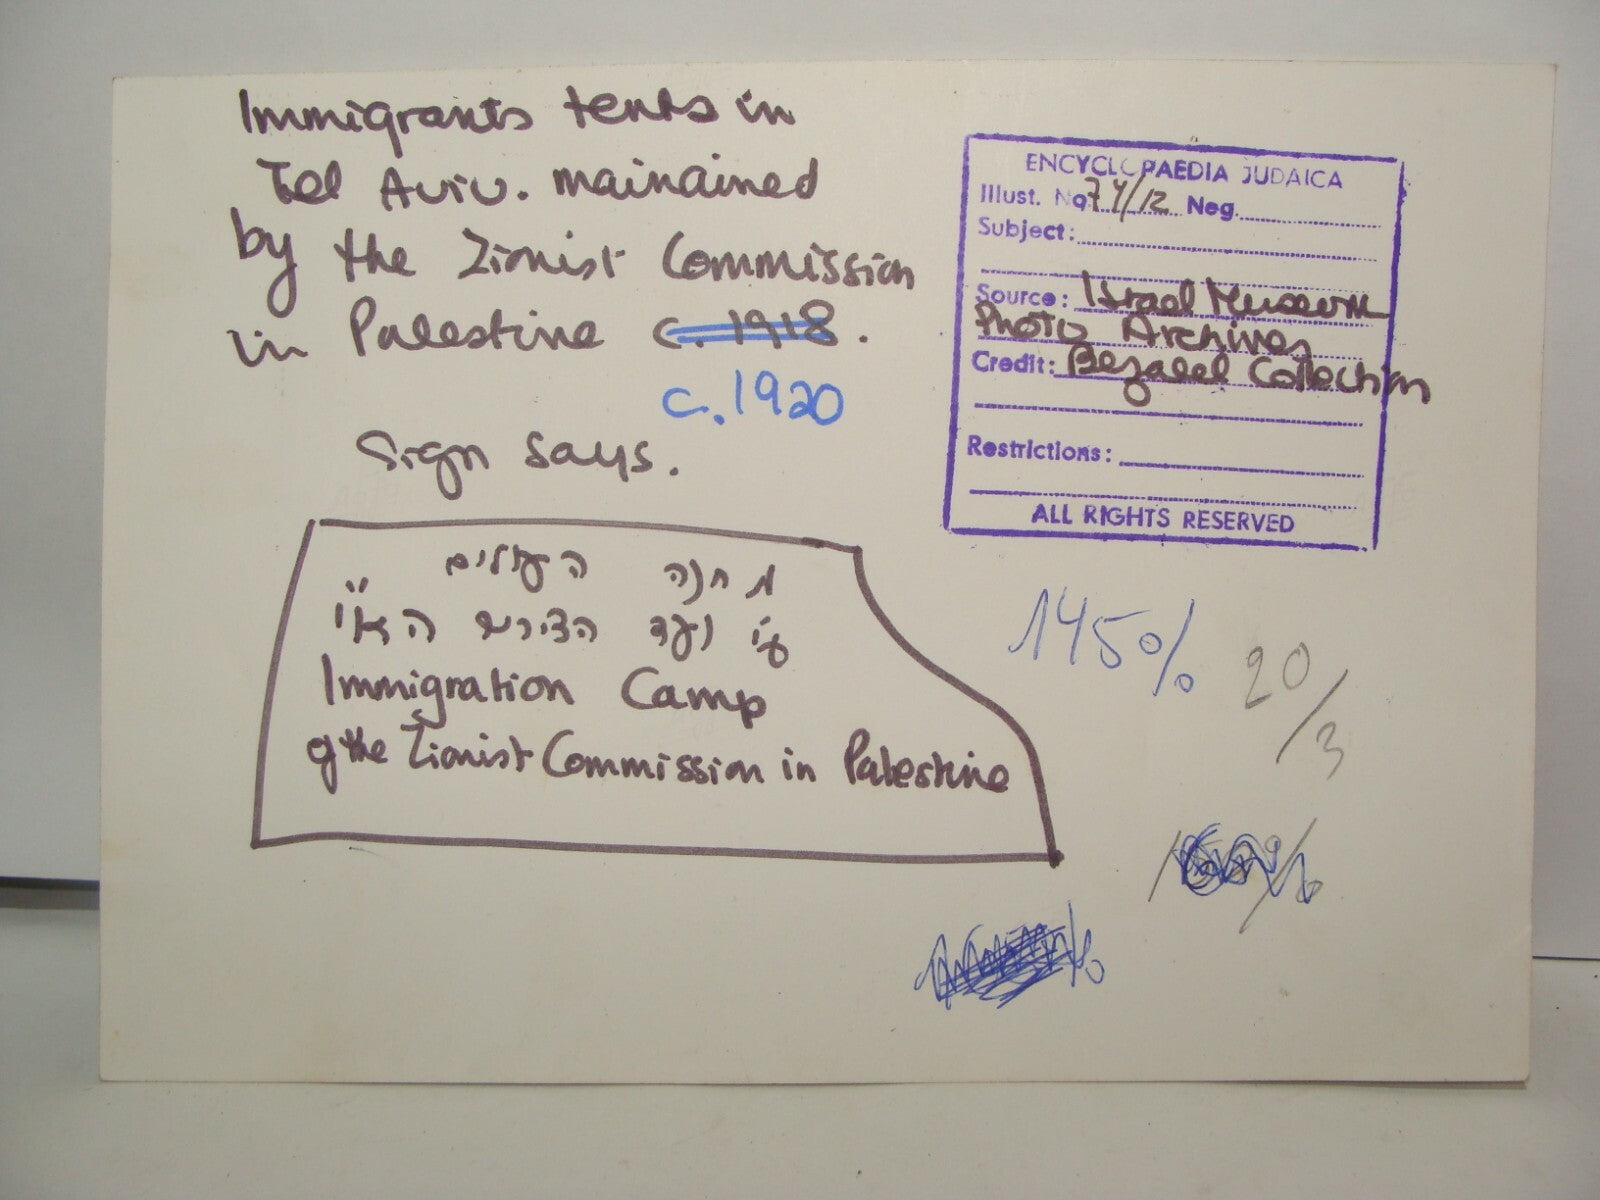 Immigrants tents in
Tel Aviv. mainained
by the Zionist Commission
in Palestine c. 1918.
c. 1920
Sign says.
מחנה העולים
ע"י ועד הצירים
Immigration Camp
of the Zionist Commission in Palestine
ENCYCLOPAEDIA JUDAICA
Illust. No 74/12 Neg.
Subject:
Source: Israel Museum
Photo Archives
Credit: Bezalel Collection
Restrictions:
ALL RIGHTS RESERVED
145%
20/3